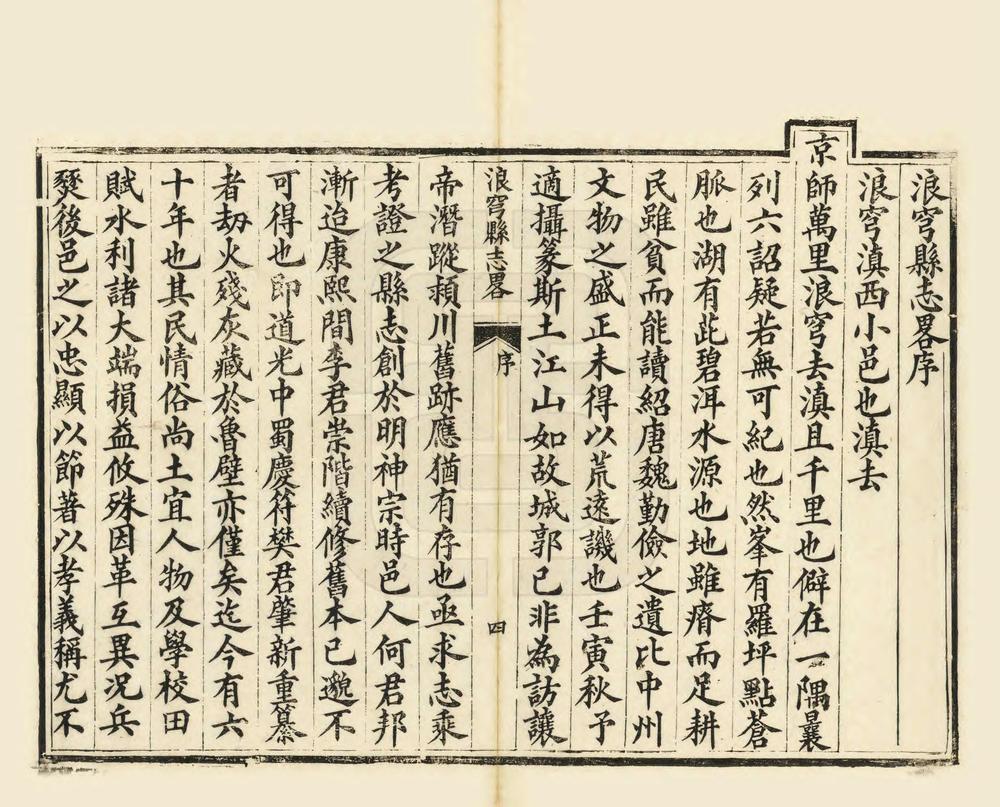 浪穹縣志畧序
浪穹滇西小邑也滇去
京師萬里浪穹去滇且千里也僻在一隅曩
列六詔疑若無可紀也然峯有羅坪點蒼
脈也湖有茈碧洱水源也地雖瘠而足耕
民雖貧而能讀紹唐魏勤儉之遺比中州
文物之盛正未得以荒遠譏也壬寅秋予
適攝篆斯土江山如故城郭已非為訪讓
浪穹縣志畧 序 四
帝潛蹤潁川舊跡應猶有存也亟求志乘
考證之縣志創於明神宗時邑人何君邦
漸迨康熙間李君崇階續修舊本已邈不
可得也即道光中蜀慶符樊君肇新重纂
者劫火殘灰藏於魯壁亦僅矣迄今有六
十年也其民情俗尚土宜人物及學校田
賦水利諸大端損益攸殊因革互異况兵
燹後邑之以忠顯以節著以孝義稱尤不